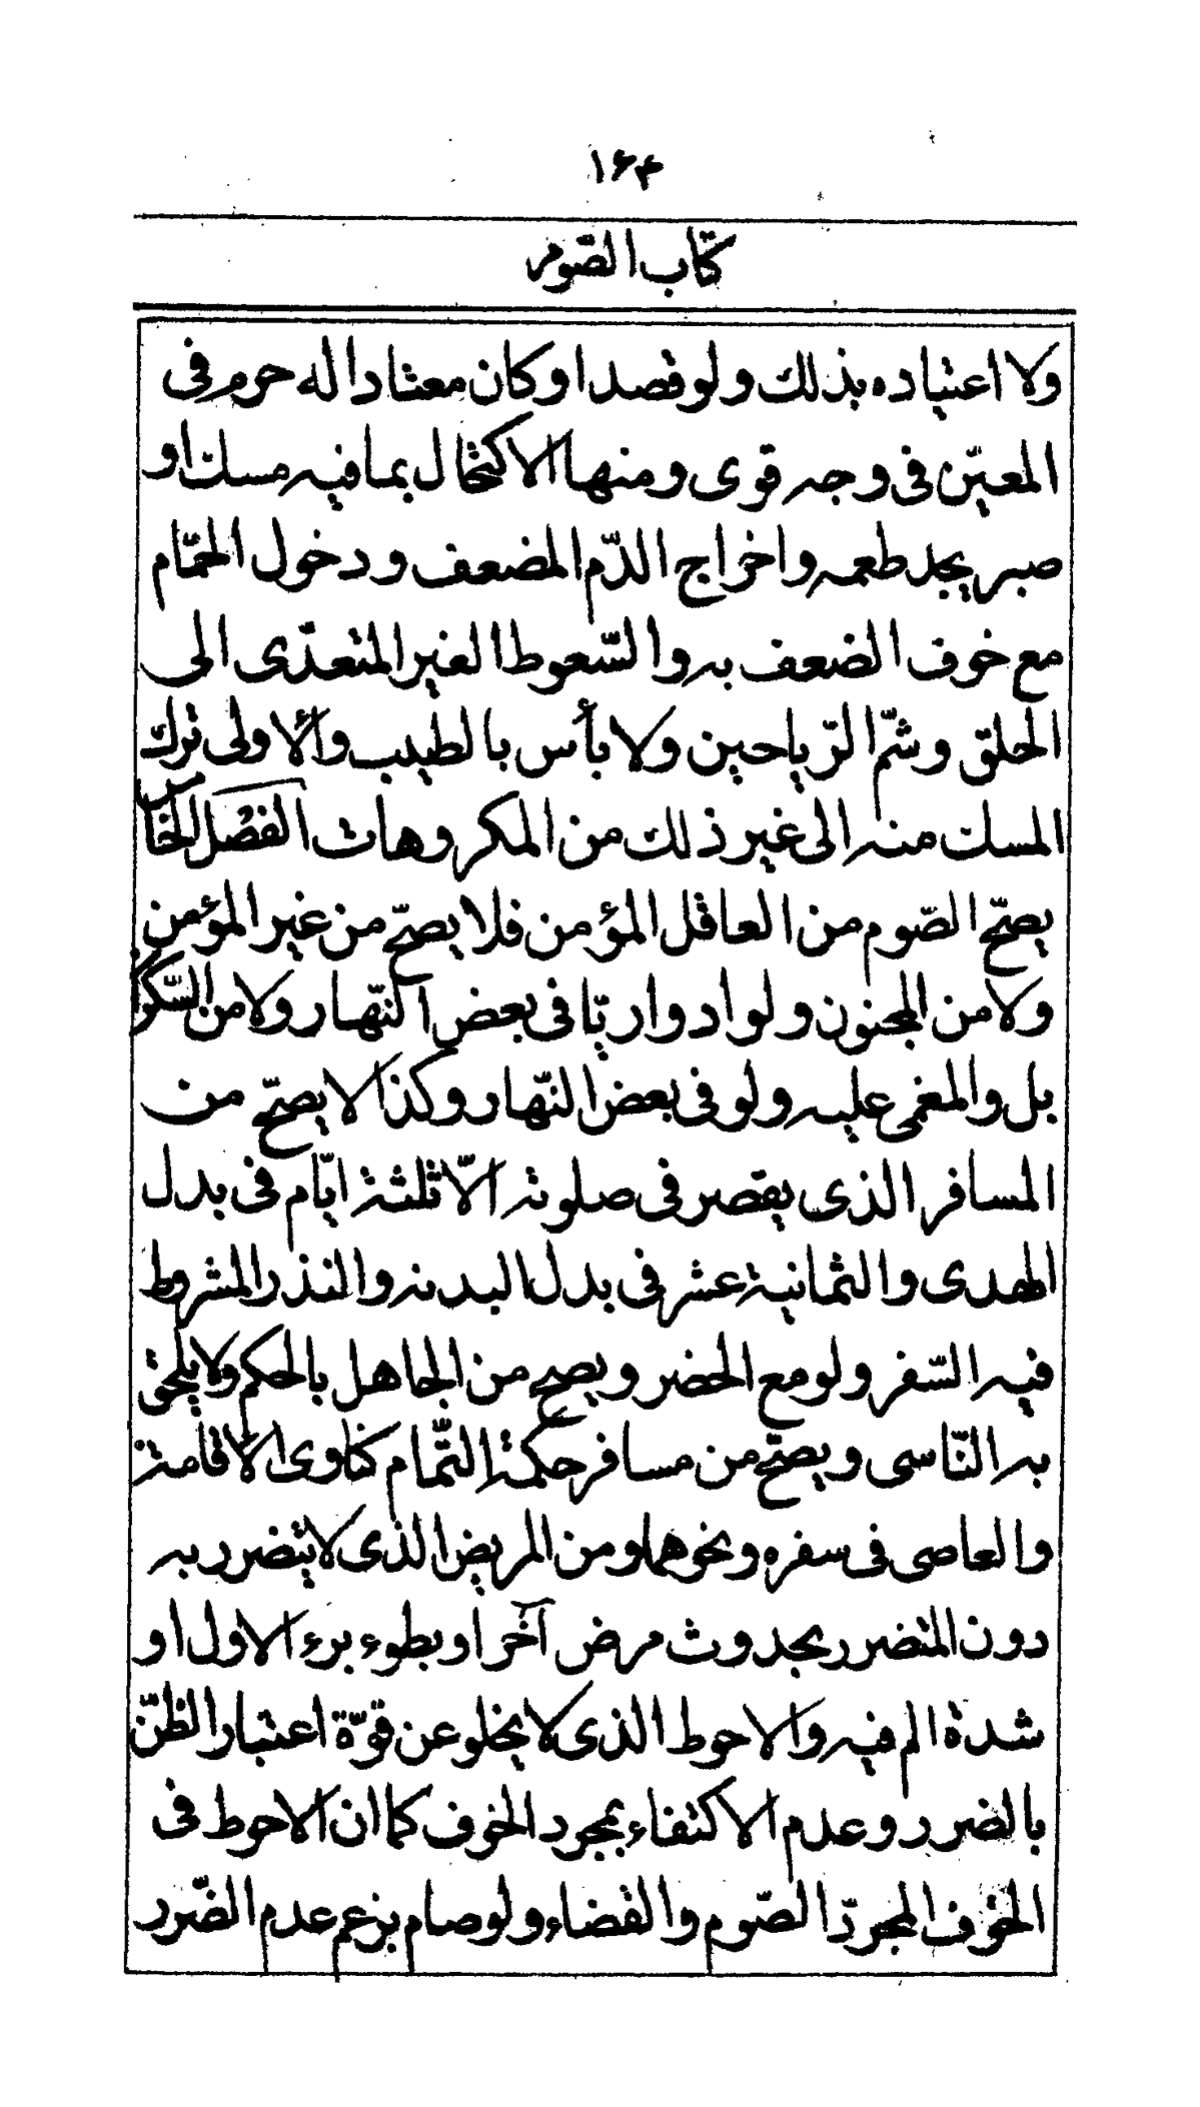 ۱۶۴
كتاب الصّوم
ولا اعتياده بذلك ولو قصدا وكان معتادا له حرم فى
المعيّن فى وجه قوى ومنها الاكتحال بما فيه مسك او
صبر يجد طعمه واخراج الدّم المضعف ودخول الحمّام
مع خوف الضعف به والسّعوط الغير المتعدّى الى
الحلق وشمّ الرّياحين ولا بأس بالطيب والأولى ترك
المسك منه الى غير ذلك من المكروهات الفصل الخامس
يصحّ الصّوم من العاقل المؤمن فلا يصحّ من غير المؤمن
ولا من المجنون ولو ادواريّا فى بعض النّهار ولا من السّكران
بل والمغمى عليه ولو فى بعض النّهار وكذا لا يصحّ من
المسافر الذى يقصر فى صلوته الّا ثلثة ايّام فى بدل
الهدى والثمانية عشر فى بدل البدنه والنذر المشروط
فيه السّفر ولو مع الحضر ويصح من الجاهل بالحكم ولا يلحق
به النّاسى ويصحّ من مسافر حكمة التّمام كناوى الاقامة
والعاصى فى سفره ونحوهما ومن المريض الذى لا يتضرر به
دون المتضرر بحدوث مرض آخر او بطوء برء الاول او
شدة الم فيه والاحوط الذى لا يخلو عن قوّة اعتبار الظنّ
بالضرر وعدم الاكتفاء بمجرد الخوف كما ان الاحوط فى
الخوف المجرّد الصّوم والقضاء ولو صام بزعم عدم الضّرر